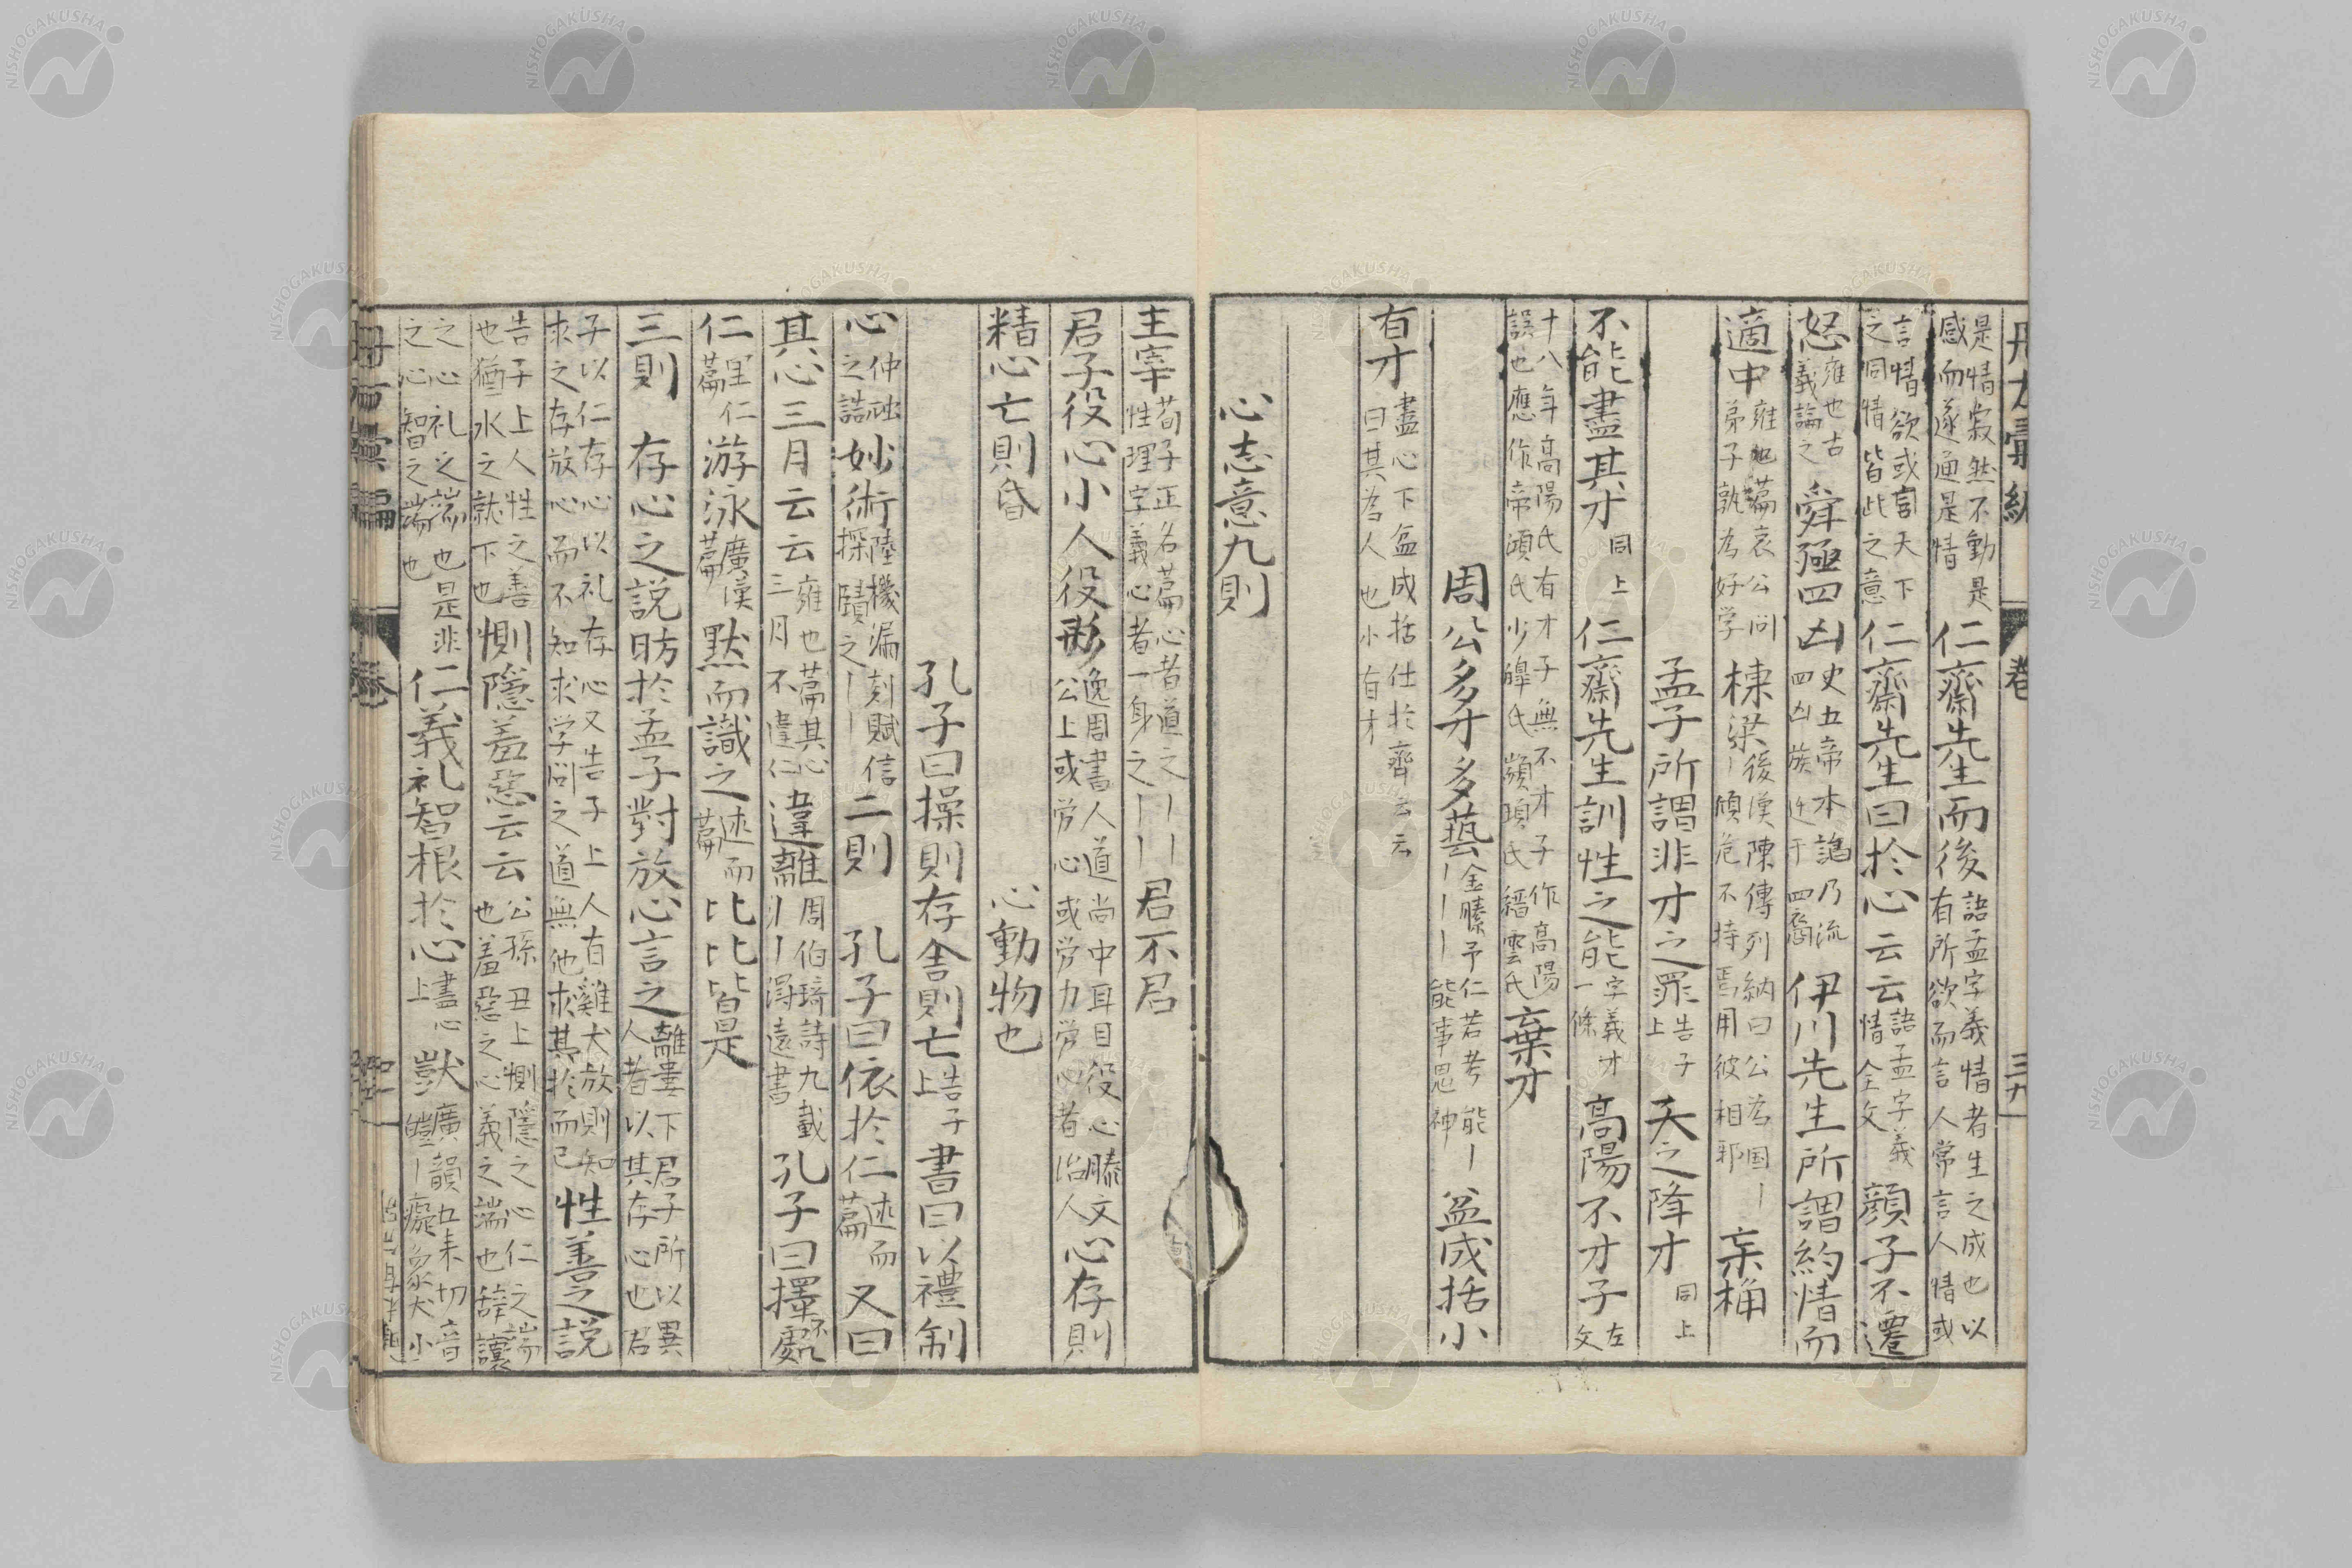 是情寂然不動是
感而遂通是情
仁齋先生而後
語孟字義情者生之成也以
有所欲而言人常言人情或
言情欲或言天下
之同情皆此之意
仁齋先生曰於心云云
語孟字義
情全文
顔子不遷
怒
雍也古
義論之
舜殛四凶
史五帝本謌乃流
四凶族迁于四裔
伊川先生所謂約情而
適中
雍也篇哀公问
弟子孰為好学
棟梁
後漢陳傳列納曰公為国〡
〡傾危不持焉用彼相邪
棄桷
孟子所謂非才之罪
告子
上
天之降才
同上
不能盡其才
同上
仁齋先生訓性之能
字義才
一條
高陽不才子
左
文
十八年高陽氏有才子無不才子作高陽
誤也應作帝頭氏少皥氏顓頊氏縉雲氏
棄才
周公多才多藝
金縢予仁若考能〡
〡〡〡能事鬼神
盆成括小
有才
盡心下盆成括仕於齊云云
曰其為人也小有才
心志意九則
主宰
荀子正名篇心者道之〡〡
性理字義心者一身之〡〡
君不君
君子役心小人役形
逸周書人道尚中耳目役心滕文
公上或労心或労力労心者治人
心存則
精心亡則昏
心動物也
孔子曰操則存舍則亡
告子
上
書曰以禮制
心
仲虺
之誥
妙術
陸機漏刻賦信
探賾之〡〡
二則
孔子曰依於仁
述而
篇
又曰
其心三月云云
雍也篇其心
三月不違仁
違離
周伯琦詩九載
〢〡得遠書
孔子曰擇不處
仁
里仁
篇
游泳
廣漢
篇
黙而識之
述而
篇
比比皆是
三則
存心之説昉於孟子對放心言之
離婁下君子所以異
人者以其存心也君
子以仁存心以礼存心又告子上人有雞犬放則知
求之存放心而不知求学问之道無他求其於而已
性善之説
告子上人性之善
也猶水之就下也
惻隠羞惡云云
公孫丑上惻隠之心仁之端
也羞惡之心義之端也辞讓
之心礼之端也是非
之心智之端也
仁義礼智根於心
盡心
上
獃
廣韻五来切音
皚〡癡象犬小